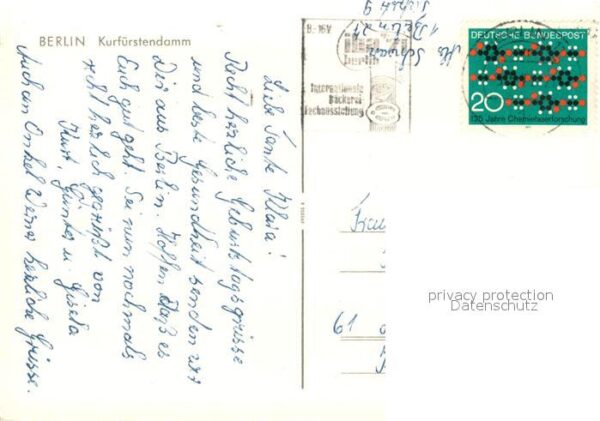 BERLIN Kurfürstendamm
Liebe Tante Klara!
Recht herzliche Geburtstagsgrüsse
und beste Gesundheit senden wir
Dir aus Berlin. Hoffen daß es
Euch gut geht. Sei nun nochmals
recht herzlich gegrüßt von
Kurt, Günter u. Gisela
Auch an Onkel Werner herzliche Grüsse.
Internationale
Bäckerei
Fachausstellung
1 Berlin 21
DEUTSCHE BUNDESPOST
20
125 Jahre Chemiefaserforschung
Frau
61
privacy protection
Datenschutz